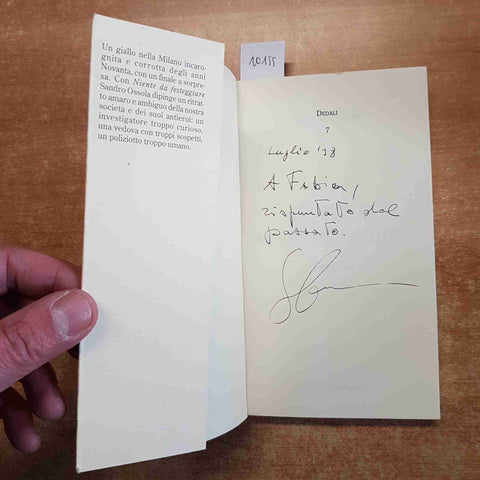 Un giallo nella Milano incaro-
gnita e corrotta degli anni
Novanta, con un finale a sorpre-
sa. Con Niente da festeggiare
Sandro Ossola dipinge un ritrat-
to amaro e ambiguo della nostra
società e dei suoi antieroi: un
investigatore troppo curioso,
una vedova con troppi sospetti,
un poliziotto troppo umano.
10155
DEDALI
7
Luglio '98
A Fabien,
rispuntato dal
passato.